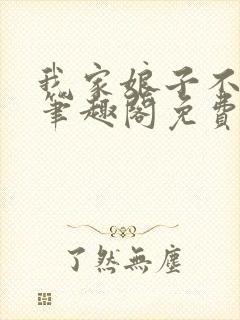 我家娘子不
笔趣阁免费
了然無塵